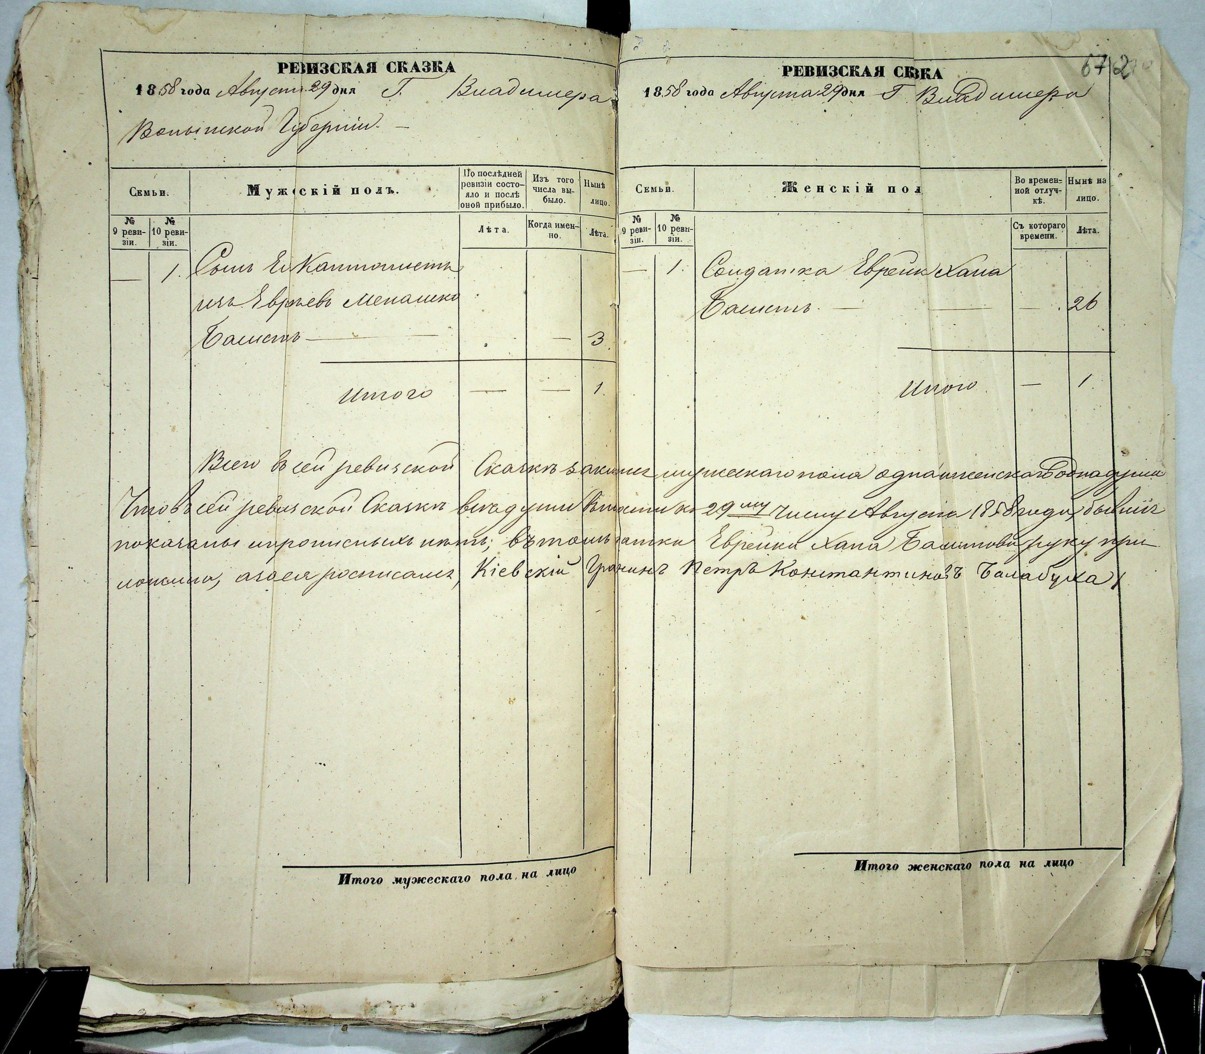 РЕВИЗСКАЯ СКАЗКА
1858 года Августа 29 дня Г. Владимера
Волынской Губернии. —
Семьи.
Мужскій полъ.
По последней ревизіи состояло и послѣ оной прибыло.
Изъ того числа выбыло.
Нынѣ на лицо.
№ 9 ревизіи.
№ 10 ревизіи.
Лѣта.
Когда именно.
Лѣта.
— 1. Сынъ Ея Кантонистъ
изъ Евреевъ Менашко
Балистъ — — 3
Итого — — 1.
Итого мужескаго пола на лицо
РЕВИЗСКАЯ СКАЗКА
672
1858 года Августа 29 дня Г. Владимера
Семьи.
Женскій полъ
Во временной отлучкѣ.
Нынѣ на лицо.
№ 9 ревизіи.
№ 10 ревизіи.
Съ котораго времени.
Лѣта.
— 1. Солдатка Еврейка Хана
Балистъ — — — 26
Итого — 1
Всего въ сей ревизской Сказкѣ мужескаго пола одна женскаго одна душа
Что въ сей ревизской Сказкѣ всѣ души къ 29му Числу Августа 1858 года, бывшіе
показаны и прописныхъ нѣтъ; въ томъ Еврейки Хана Балистова руку при-
ложила, а за ея росписался, Кіевскій Гражнинъ Петръ Константиновъ Балабуха
Итого женскаго пола на лицо